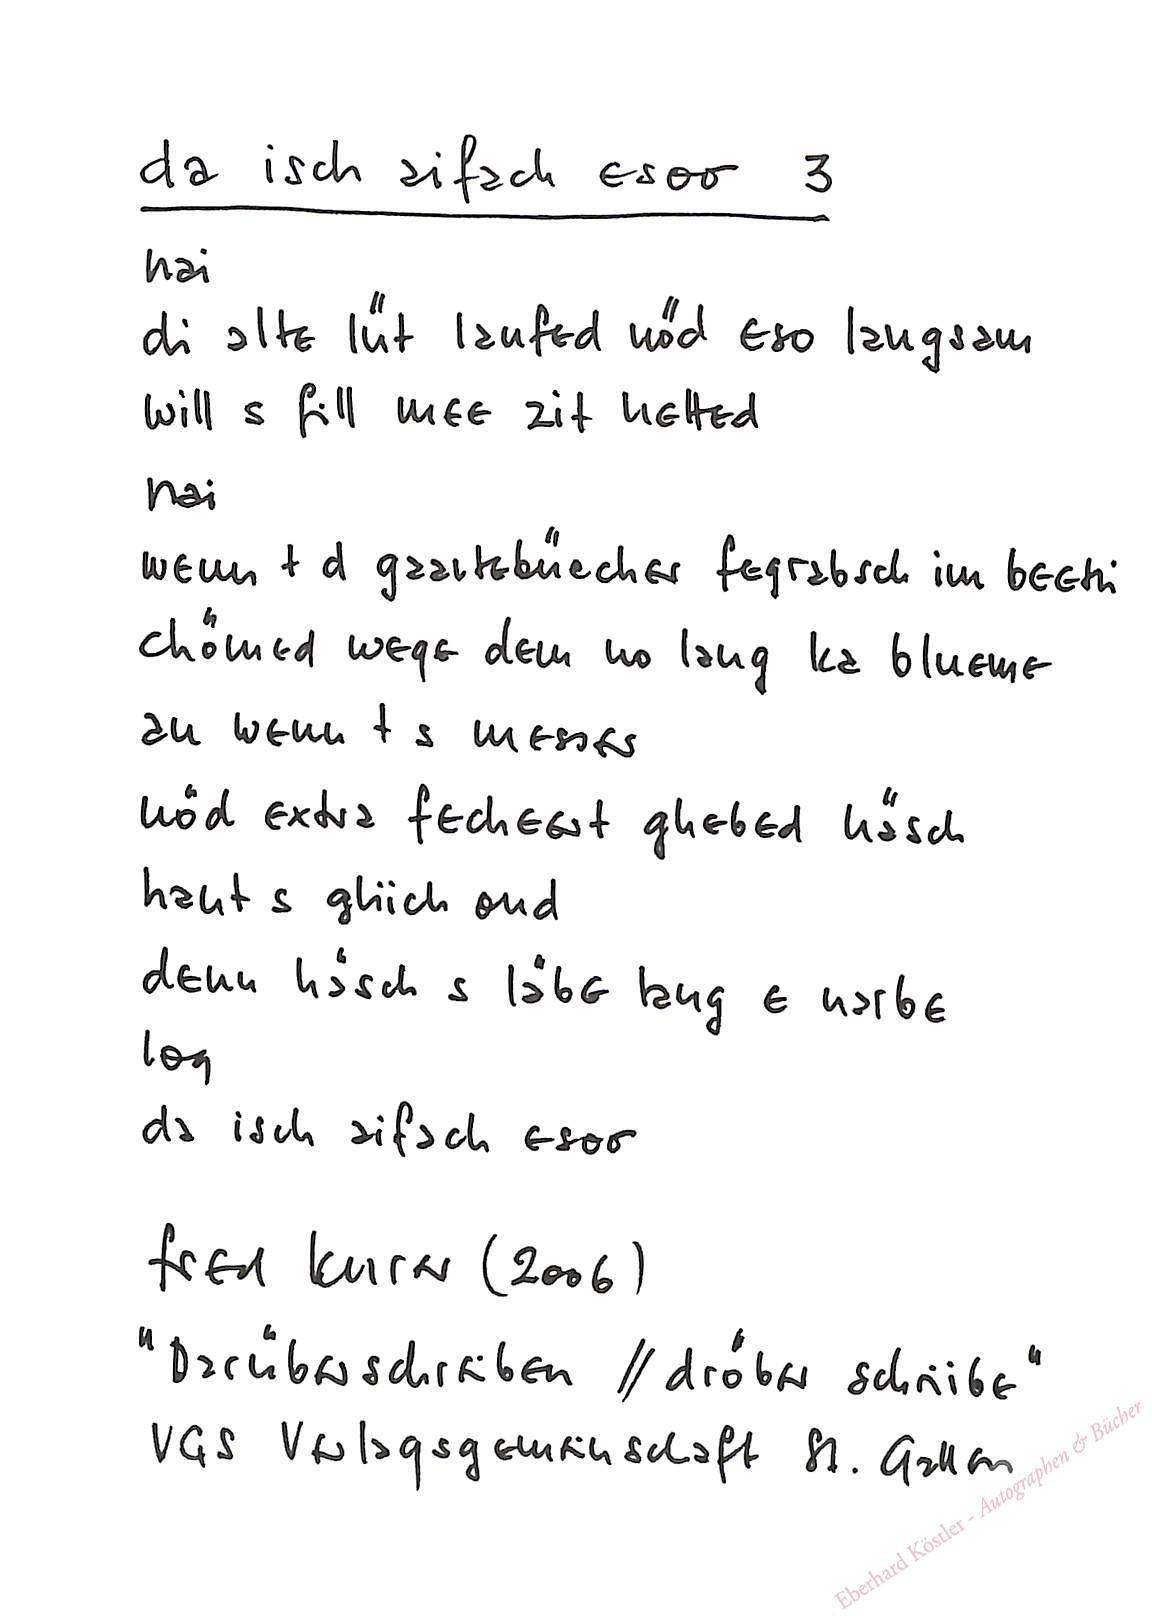 da isch aifach esoo 3
nai
di alte lüt laufed nöd eso langsam
will s fill mee zit hetted
nai
wenn t d gaartebüecher fegrabsch im beetli
chömed wege dem no lang ka blueme
au wenn t s messer
nöd extra fecheert ghebed häsch
haut s gliich ond
denn häsch s läbe lang e narbe
log
da isch aifach esoo
fred kurer (2006)
"Darüberschreiben // dröber schriibe"
VGS Verlagsgemeinschaft St. Gallen
Eberhard Köstler - Autographen & Bücher